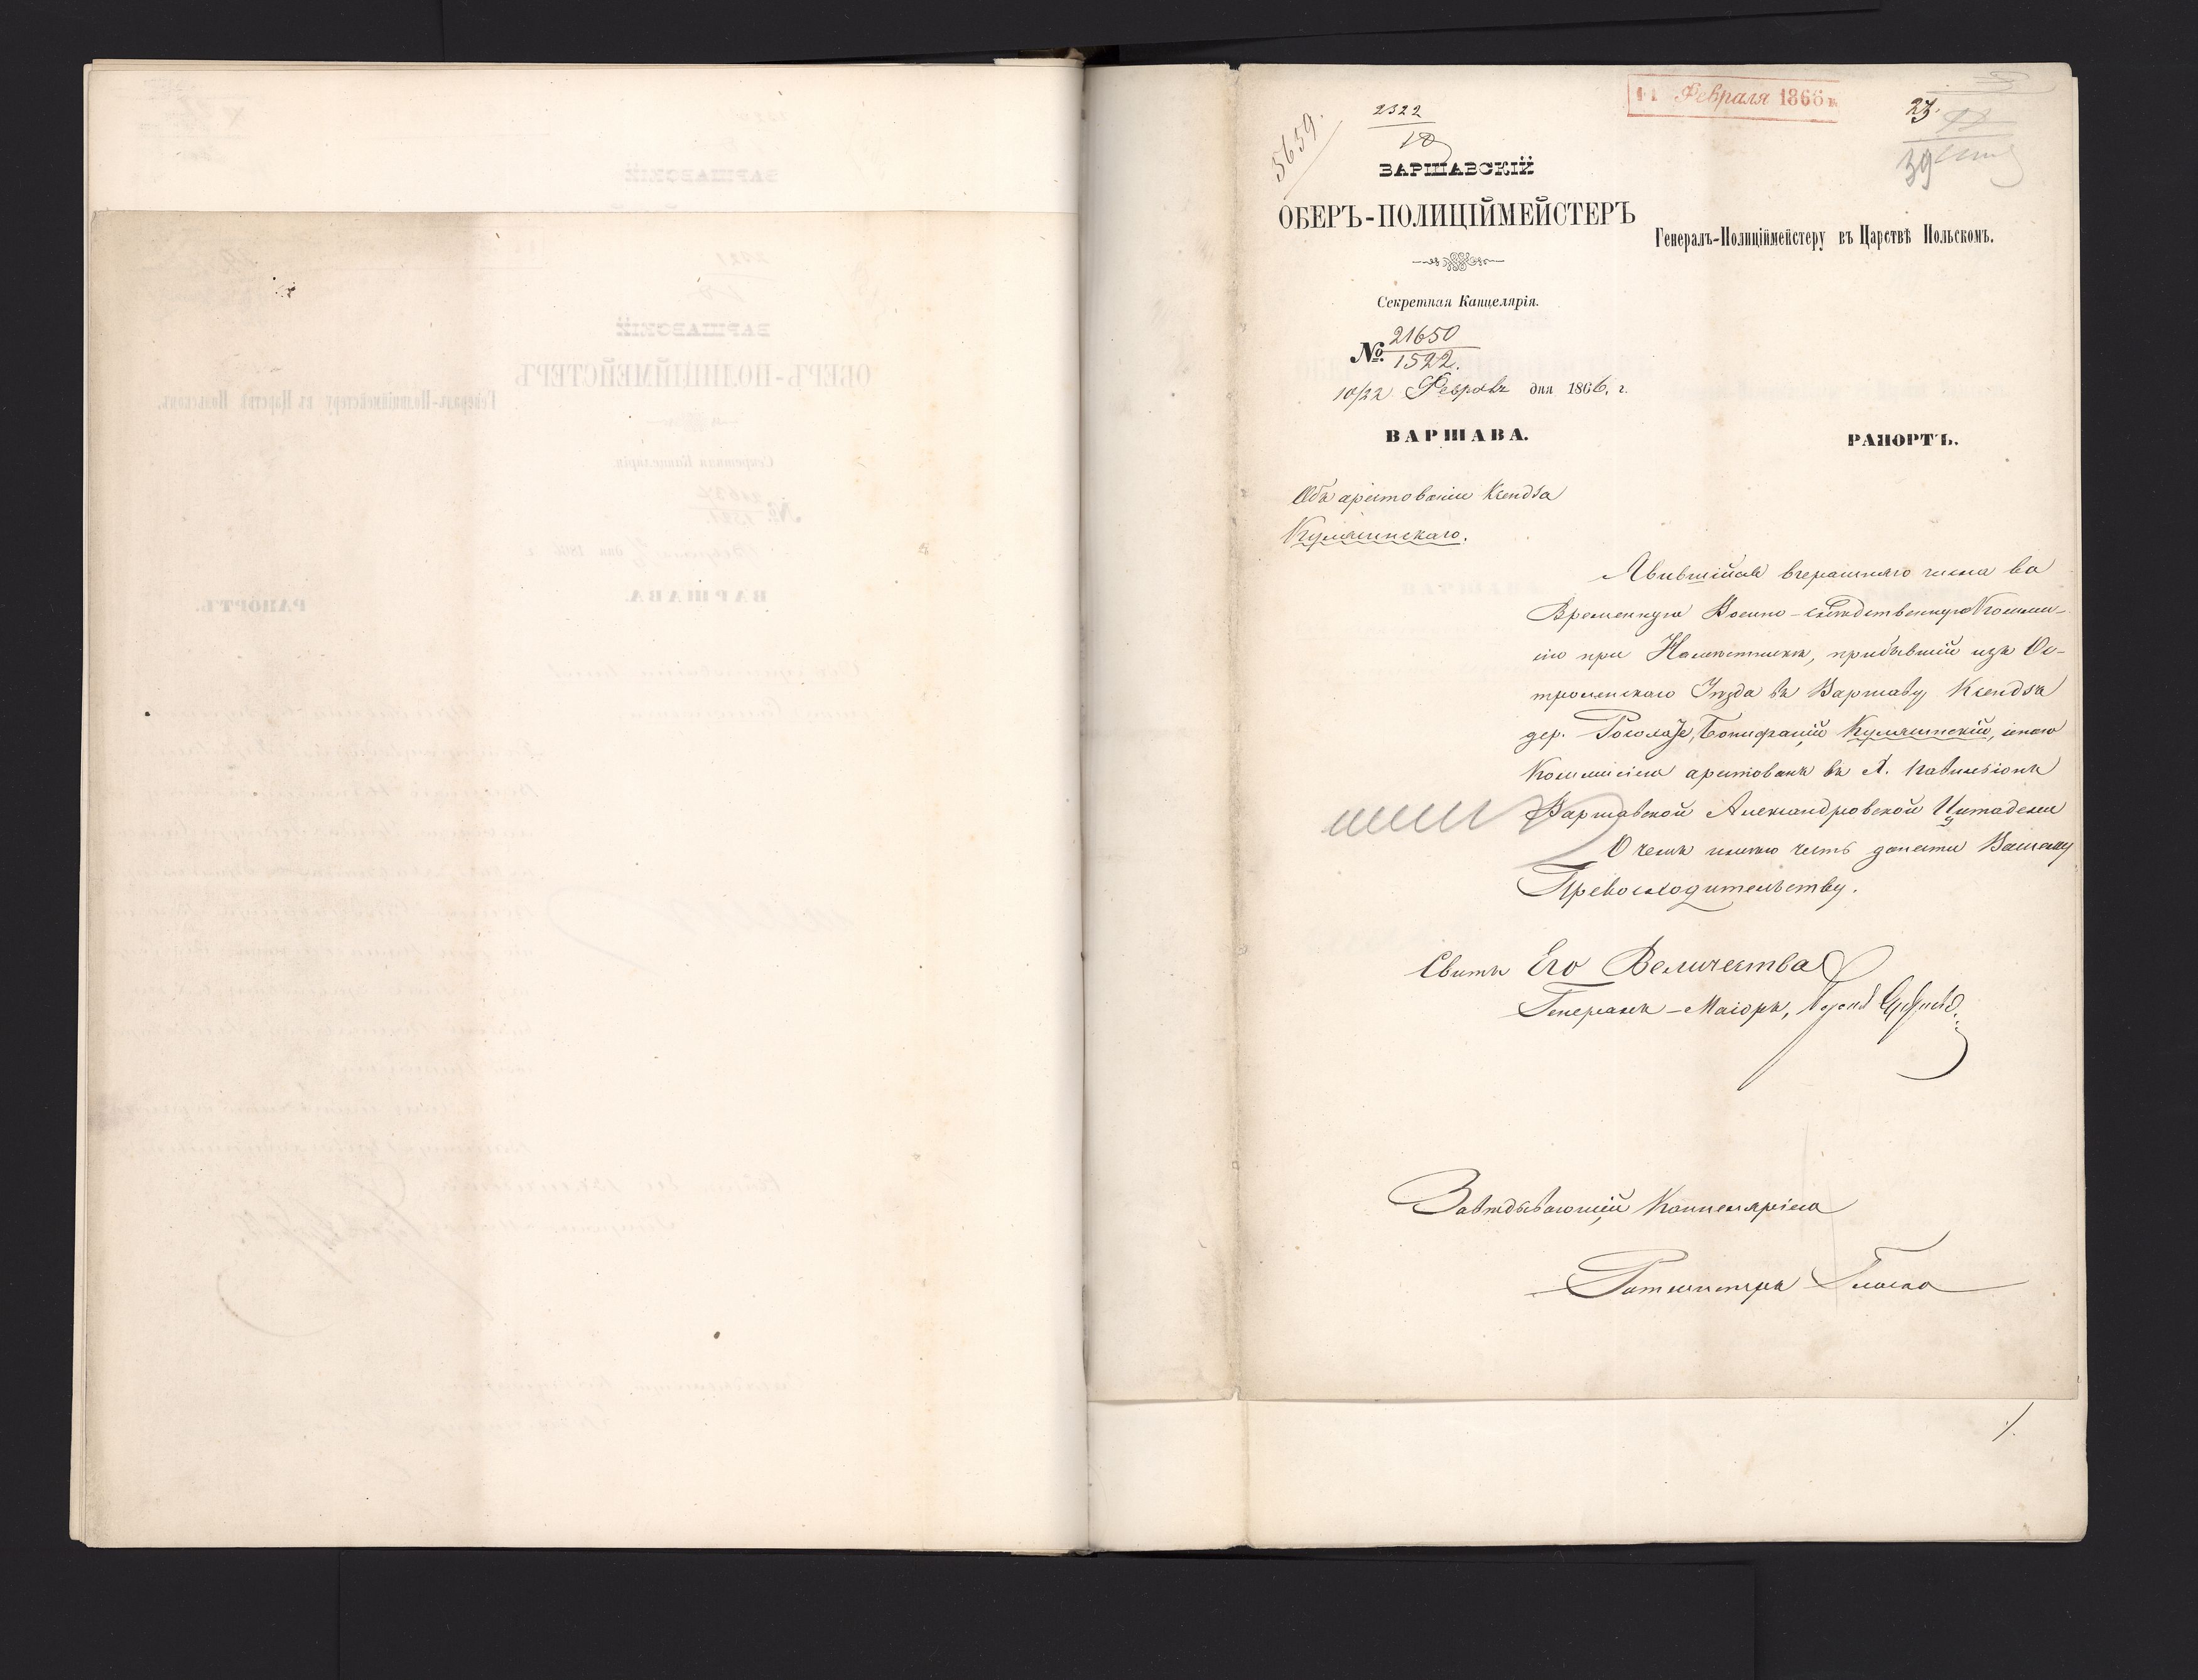 5659.
2322
18
11 Февраля 1866 г.
23.
39
ВАРШАВСКІЙ
ОБЕРЪ-ПОЛИЦІЙМЕЙСТЕРЪ
Генералъ-Полиціймейстеру въ Царствѣ Польскомъ.
Секретная Канцелярія.
№ 21650
1522.
10/22 Февраля дня 1866, г.
ВАРШАВА.
РАПОРТЪ.
Объ арестованіи Ксендза
Явившійся вчерашняго числа во
Временную Военно-слѣдственную Коммис-
сію при Намѣстникѣ, прибывшій изъ Ос-
троленскаго Уѣзда въ Варшаву, Ксендзъ
дер. Бонифацій сею
Коммисіею арестованъ въ X. Павильонѣ
Варшавской Александровской Цитадели
О чемъ имѣю честь донести Вашему
Превосходительству.
Свиты Его Величества
Генералъ-Маіоръ, Баронъ Фредриксъ
Завѣдывающій Канцеляріею
Ротмистръ
1.